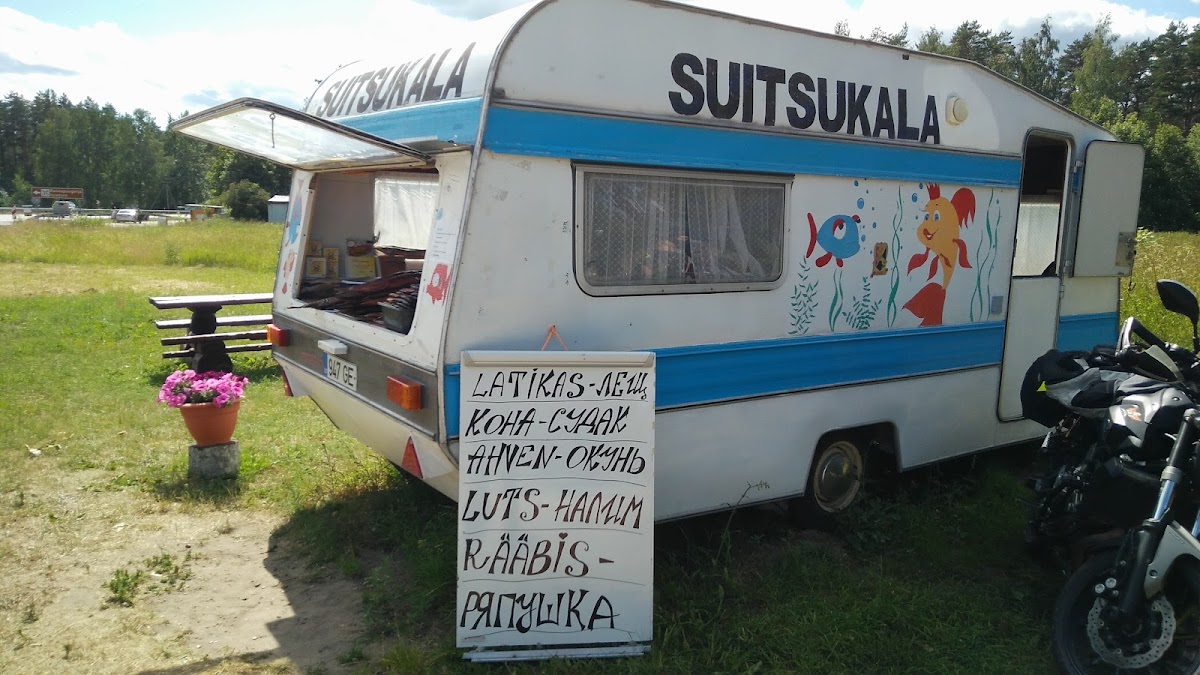 SUITSUKALA
SUITSUKALA
947 GE
LATIKAS-ЛЕЩ
КОНА-СУДАК
AHVEN-ОКУНЬ
LUTS-НАЛИМ
RÄÄBIS-
РЯПУШКА